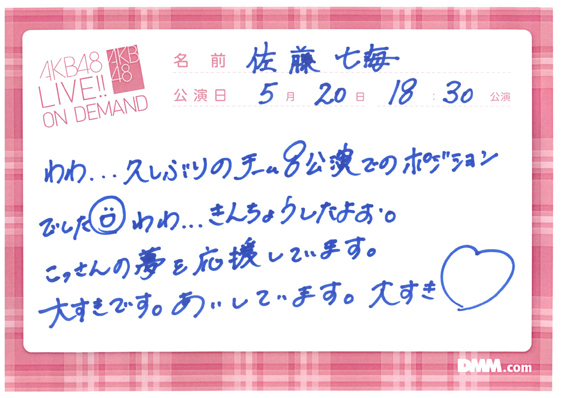 AKB48
LIVE!!
ON DEMAND
AKB
48
名前 佐藤 七海
公演日 5月 20日 18:30公演
わわ...久しぶりのチーム8公演でのポジション
でした わわ...きんちょうしたよぉ。
こっさんの夢を応援しています。
大すきです。あいしています。大すき
DMM.com